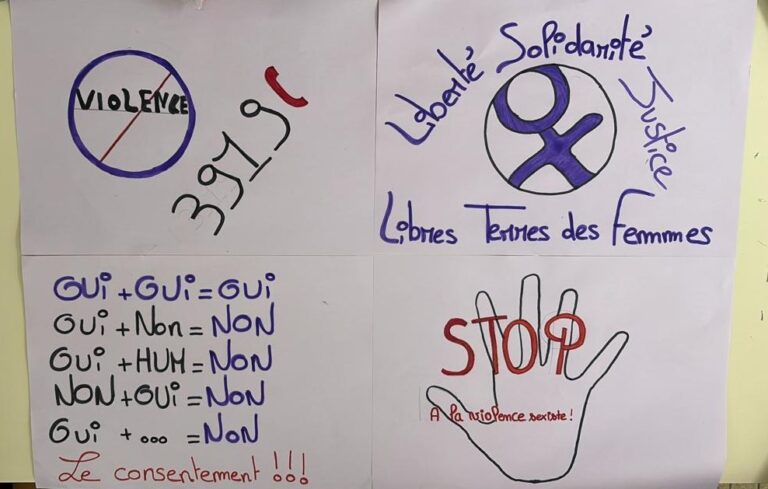 VIOLENCE
3919
Liberté Solidarité Justice
Libres Terres des Femmes
OUi + OUi = OUi
OUi + Non = NON
OUi + HUM = NON
NON + OUi = NON
Oui + ... = NON
Le consentement !!!
STOP
A la violence sexiste !